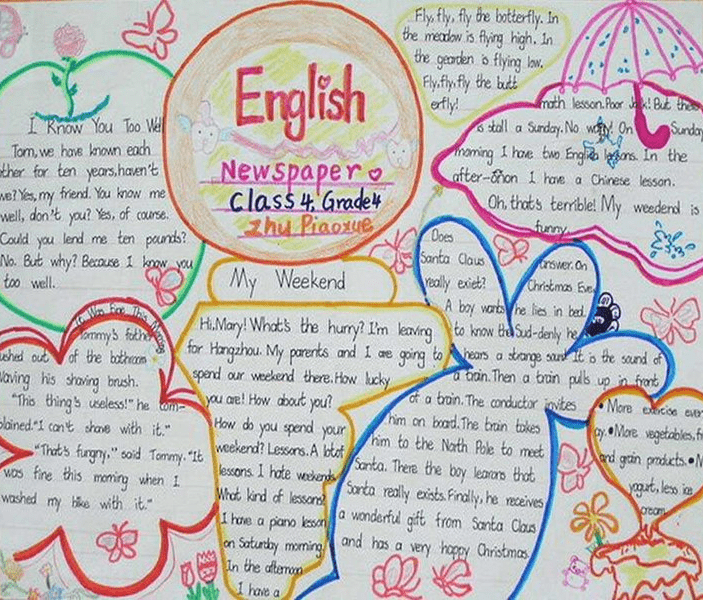 English
Newspaper
Class 4. Grade4
Zhu Piaoxue
I Know You Too Well
Tom, we have known each
other for ten years, haven't
we? Yes, my friend. You know me
well, don't you? Yes, of course.
Could you lend me ten pounds?
No. But why? Because I know you
too well.
It Was Fine This Morning
Tommy's father
ushed out of the bathroom
Waving his shaving brush.
"This thing's useless!" he com-
plained. "I can't shave with it."
"That's fungny," said Tommy. "It
was fine this morning when I
washed my bike with it."
My Weekend
Hi, Mary! What's the hurry? I'm leaving
for Hangzhou. My parents and I are going to
spend our weekend there. How lucky
you are! How about you?
How do you spend your
weekend? Lessons. A lot of
lessons. I hate weekends
What kind of lessons?
I have a piano lesson
on Saturday morning.
In the afternoon
I have a
math lesson. Poor Jack! But there
is stall a Sunday. No worry! On Sunday
morning I have two English lessons. In the
after-ohon I have a Chinese lesson.
Oh, that's terrible! My weedend is
funny.
Fly, fly, fly the botterfly. In
the meadow is flying high. In
the gearden is flying low.
Fly, fly, fly the butt
erfly!
Does
Santa Claus
really exiet?
A boy wants
to know the
answer. On
Christmas Eve,
he lies in bed.
Sud-denly he
hears a strange sound. It is the sound of
a train. Then a train pulls up in front
of a train. The conductor invites
him on board. The train takes
him to the North Pole to meet
Santa. There the boy learons that
Santa really exists. Finally, he receives
a wonderful gift from Santa Claus
and has a very happy Christmas.
• More exercise ever
ay. • More vegetables, fr
and grain products. • M
yogurt, less ice
cream.